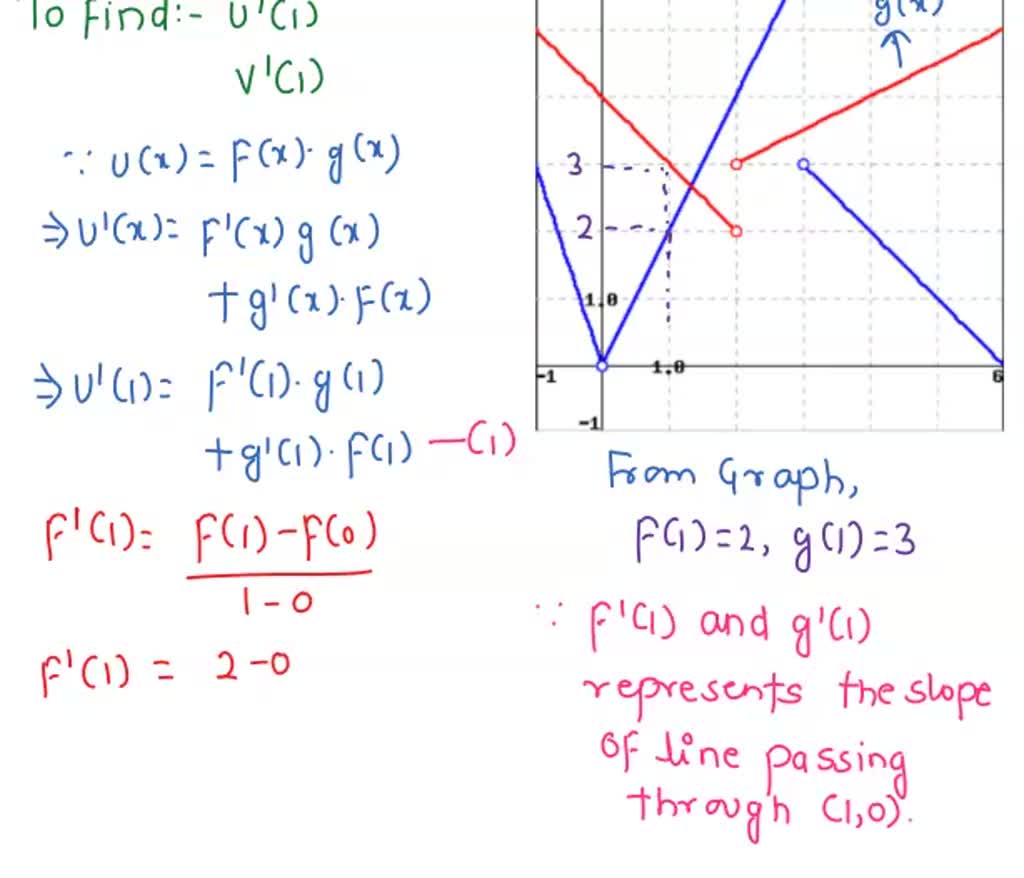 To Find:- U'(1)
V'(1)
∵ U(x) = F(x)· g(x)
⇒ U'(x) = F'(x) g(x)
+ g'(x)· F(x)
⇒ U'(1) = F'(1)· g(1)
+ g'(1)· F(1) —(1)
F'(1) = F(1) - F(0)
1 - 0
F'(1) = 2 - 0
g(x)
3
2
1.0
-1
1.0
6
-1
From Graph,
F(1) = 2, g(1) = 3
∵ F'(1) and g'(1)
represents the slope
of line passing
through (1,0).